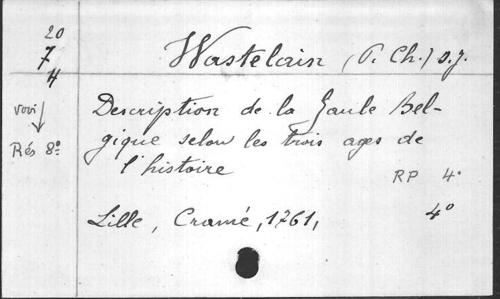 20
7
4
Wastelain (P. Ch.) s.j.
voir
Rés 8º
Description de la Gaule Bel-
gique selon les trois ages de
l'histoire
RP 4º
Lille, Cramé, 1761,
4º